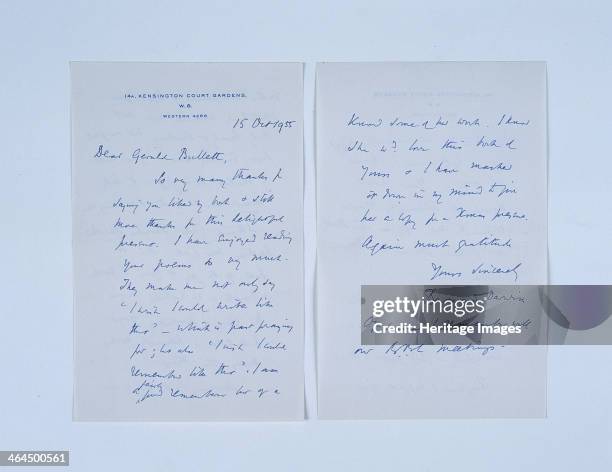 14A, KENSINGTON COURT GARDENS,
W.8.
WESTERN 4266
15 Oct 1955
Dear Gerald Bullett,
So very many thanks for
saying you liked my book & still
more thanks for this delightful
present. I have enjoyed reading
your poems so very much.
They make me not only say
"I wish I could write like
this" – which is past praying
for; but also "I wish I could
remember like this". I am
fairly
good rememberer but of a
know some of her work. I know
she wd love this book of
yours & I have marked
it down in my mind to give
her a copy for a Xmas present.
Again much gratitude
Yours sincerely
Darwin
our meetings.
gettyimages
Credit: Heritage Images
464500561